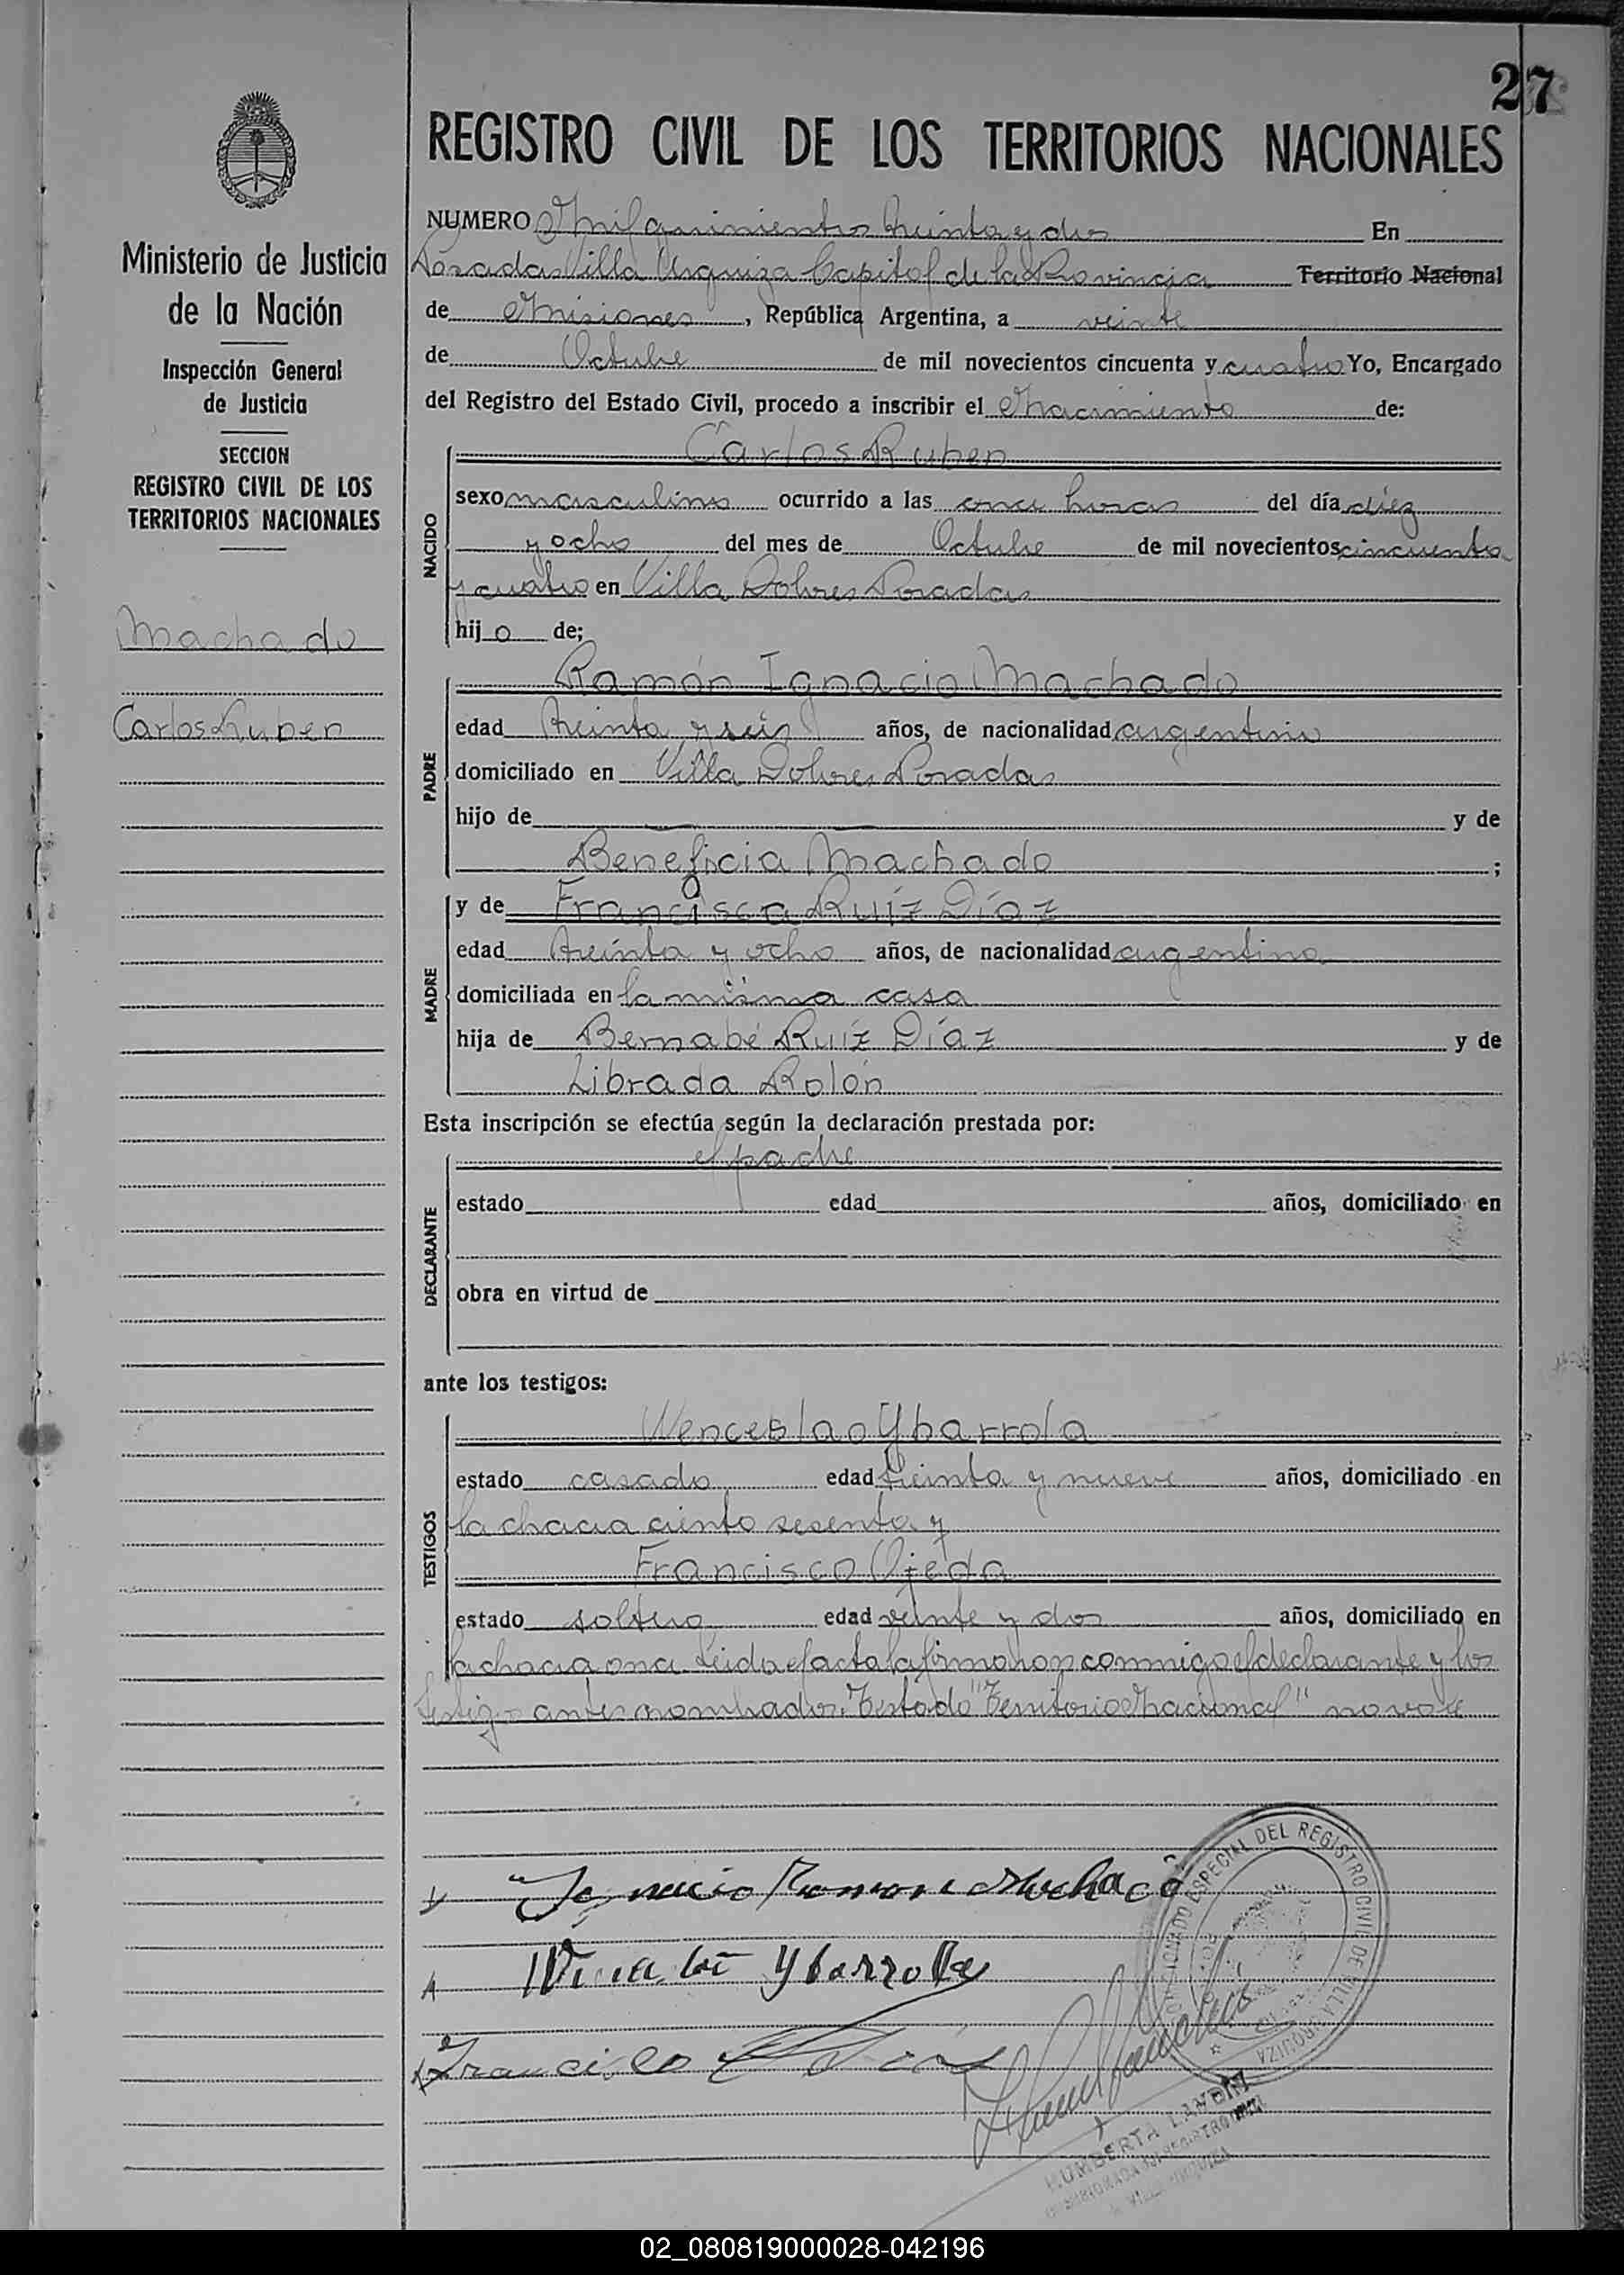 27
REGISTRO CIVIL DE LOS TERRITORIOS NACIONALES
Ministerio de Justicia
de la Nación
Inspección General
de Justicia
SECCION
REGISTRO CIVIL DE LOS
TERRITORIOS NACIONALES
Machado
Carlos Ruben
NUMERO Mil quinientos treinta y dos En
Posadas Villa Urquiza Capital de la Provincia Territorio Nacional
de Misiones, República Argentina, a veinte
de Octubre de mil novecientos cincuenta y cuatro Yo, Encargado
del Registro del Estado Civil, procedo a inscribir el Nacimiento de:
NACIDO
Carlos Ruben
sexo masculino ocurrido a las once horas del día diez
y ocho del mes de Octubre de mil novecientos cincuenta
y cuatro en Villa Dolores Posadas
hijo de;
PADRE
Ramón Ignacio Machado
edad treinta y seis años, de nacionalidad argentina
domiciliado en Villa Dolores Posadas
hijo de y de
Beneficia Machado ;
MADRE
y de Francisca Ruíz Díaz
edad treinta y ocho años, de nacionalidad argentina
domiciliada en la misma casa
hija de Bernabé Ruíz Díaz y de
Librada Rolón
Esta inscripción se efectúa según la declaración prestada por:
DECLARANTE
el padre
estado edad años, domiciliado en
obra en virtud de
ante los testigos:
TESTIGOS
Wenceslao Ybarrola
estado casado edad treinta y nueve años, domiciliado en
la chacra ciento sesenta y
Francisco Ojeda
estado soltero edad veinte y dos años, domiciliado en
la chacra once. Leida el acta la firmaron conmigo el declarante y los
testigos antes nombrados. Testado "Territorio Nacional" no vale
Ignacio Ramon Machado
Ybarrola
Francisco
ESPECIAL DEL REGISTRO CIVIL DE VILLA URQUIZA
HUMBERTA LANDI
02_080819000028-042196